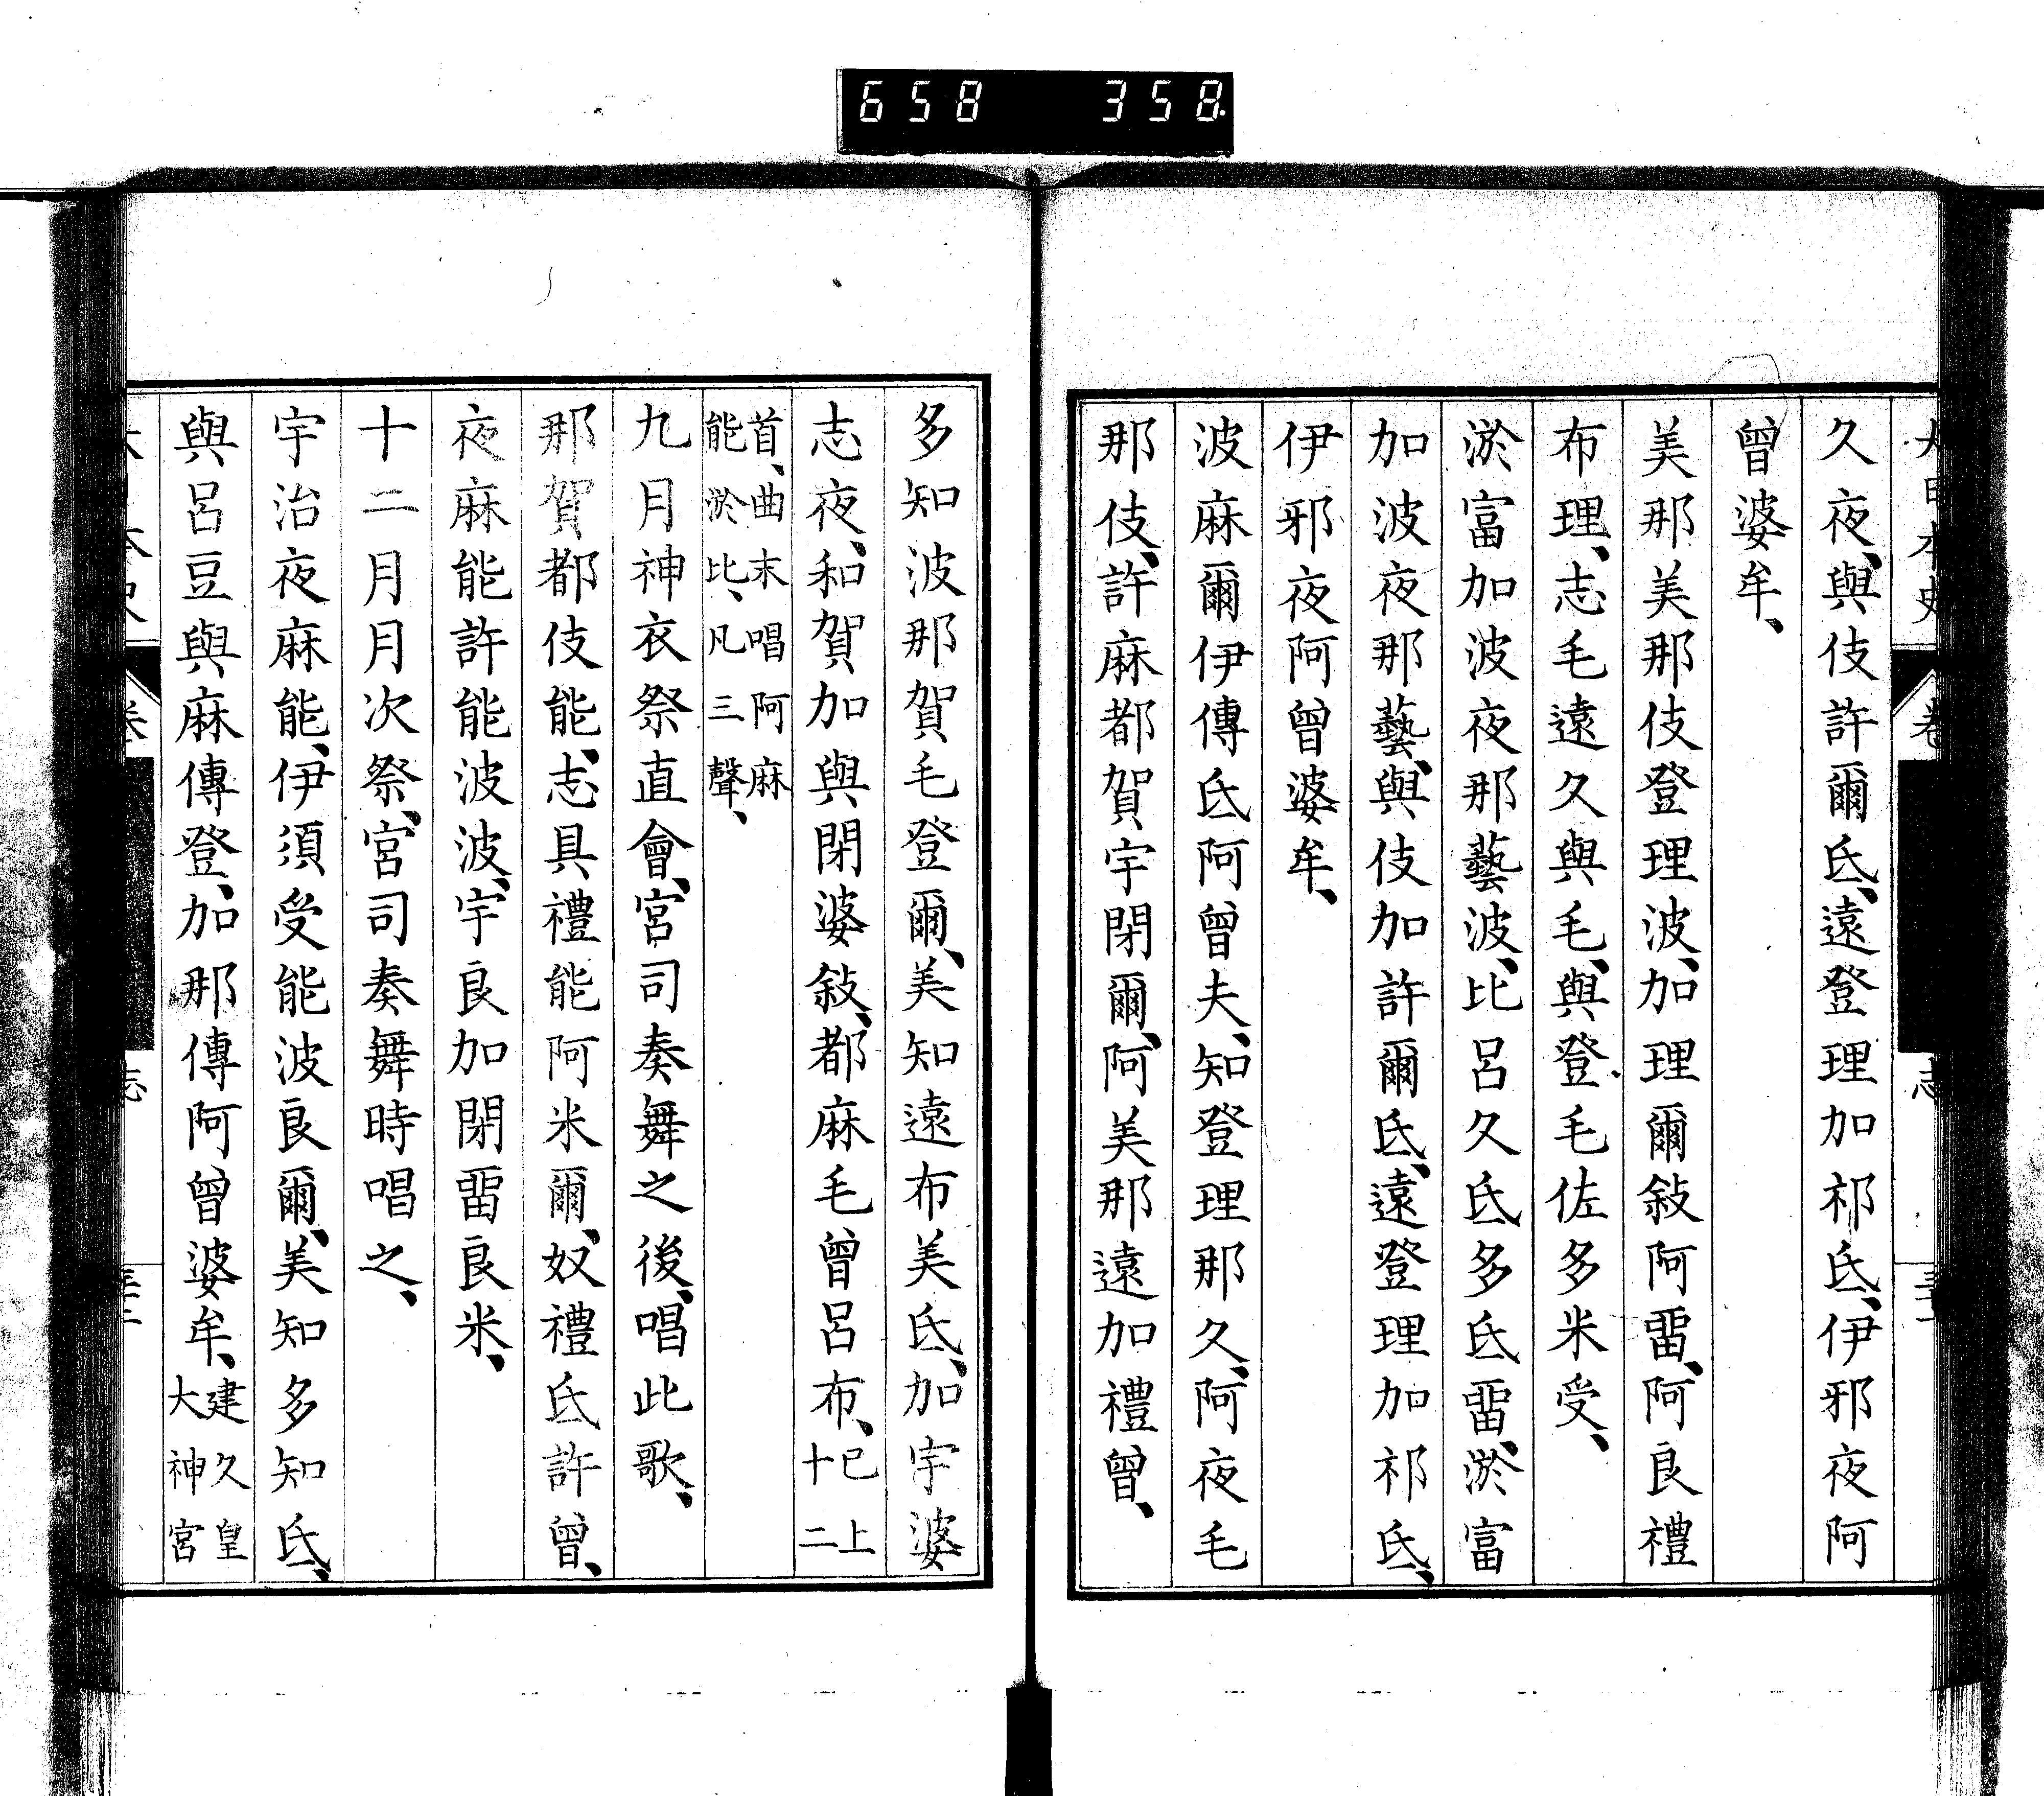 658 358
大日本史 卷 志
久夜、與伎許爾氐、遠登理加祁氐、伊邪夜阿
曾婆牟、
美那美那伎登理波、加理爾敍阿畱、阿良禮
布理、志毛遠久與毛、與登毛佐多米受、
淤富加波夜那藝波、比呂久氐多氐畱、淤富
加波夜那藝、與伎加許爾氐、遠登理加祁氐、
伊邪夜阿曾婆牟、
波麻爾伊傳氐阿曾夫、知登理那久、阿夜毛
那伎、許麻都賀宇閉爾、阿美那遠加禮曾、
多知波那賀毛登爾、美知遠布美氐、加宇婆
志夜、和賀加與閉婆敍、都麻毛曾呂布、已上十二
首、曲末唱阿麻能淤比、凡三聲、
九月神衣祭直會、宮司奏舞之後、唱此歌、
那賀都伎能、志具禮能阿米爾、奴禮氐許曾、
夜麻能許能波波、宇良加閉畱良米、
十二月月次祭、宮司奏舞時唱之、
宇治夜麻能、伊須受能波良爾、美知多知氐、
與呂豆與麻傳登、加那傳阿曾婆牟、建久皇大神宮